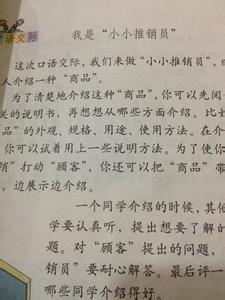 语交际
我是“小小推销员”
这次口语交际，我们来做“小小推销员”，
人介绍一种“商品”。
为了清楚地介绍这种“商品”，你可以先阅
关的说明书，再想想从哪些方面介绍。比如
品”的外观、规格、用途、使用方法。在介
你可以试着用上一些说明方法。为了使你
销”打动“顾客”，你还可以把“商品”带
边展示边介绍。
一个同学介绍的时候，其他
学要认真听，提出想要了解的
题。对“顾客”提出的问题，
销员”要耐心解答。最后评一
哪些同学介绍得好。